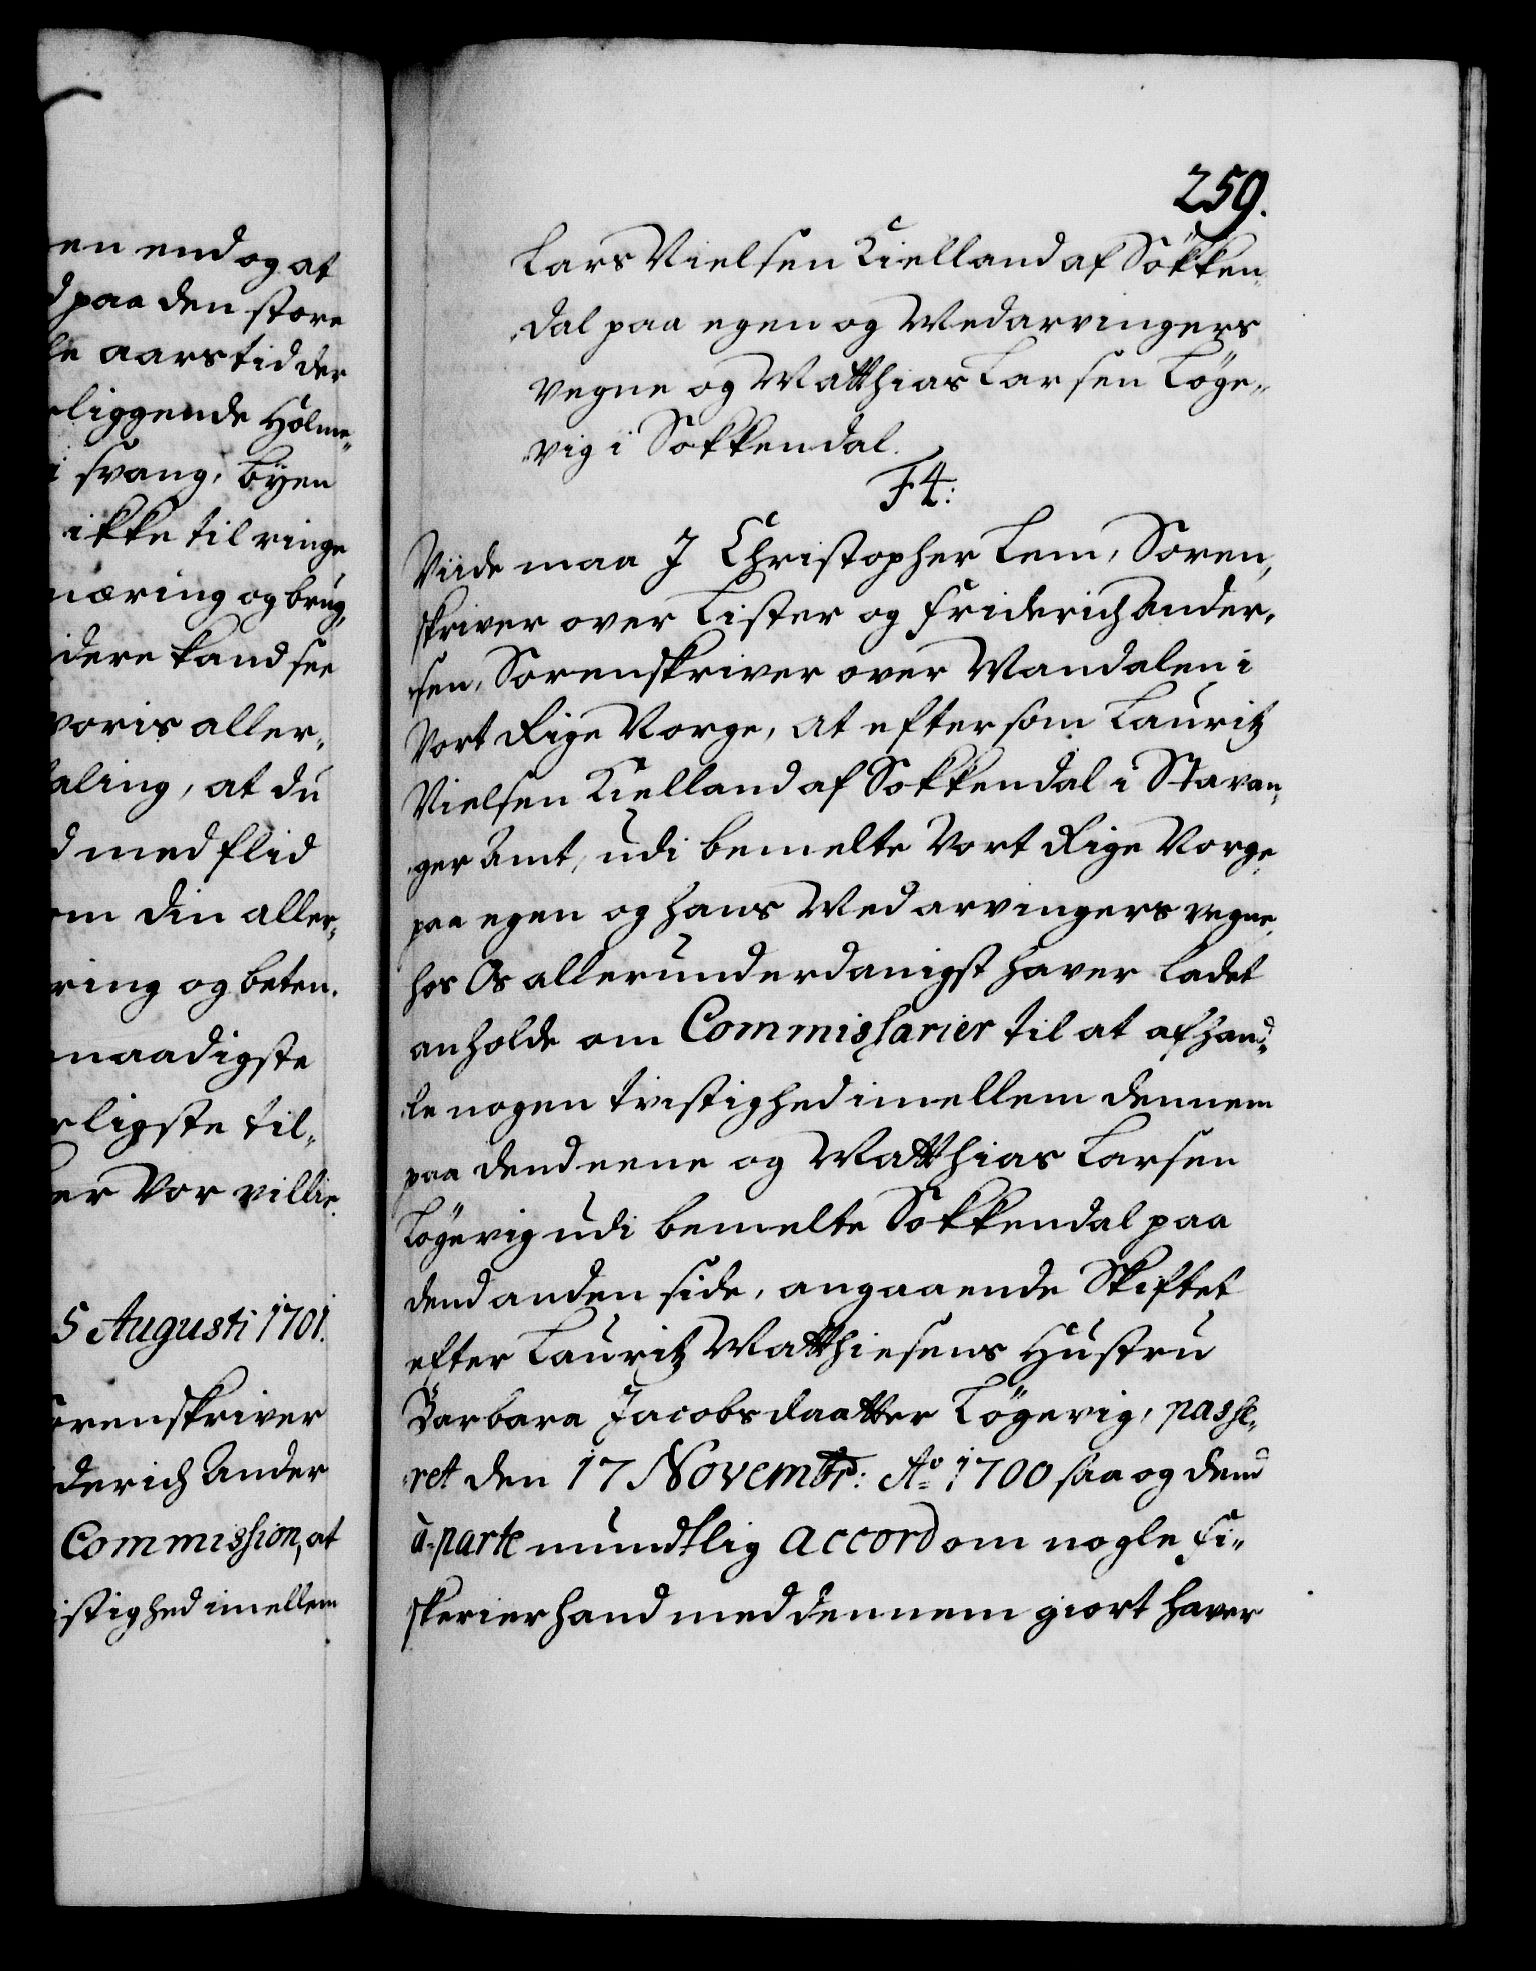 en end og at
d paa den store
le aarstid der
rliggende Holme„
i svang, byen
ikke til ringe
næring og brug,
idere kand see
voris aller„
aling, at du
d med flid
om din aller„
ring og beten.
naadigste
rligste til„
er Vor villie.
5 Augusti 1701.
orenskriver
derich Ander
Commission, at
istighed imellem
259.
Lars Nielsen Kielland af Sökken„
„dal paa egen og Medarvingers
vegne og Matthias Larsen Löge„
„vig i Sokkendal.
F4:
Viide maa J Christopher Lem, Soren„
skriver over Lister og Friderich Ander„
„sen, Sorenskriver over Mandalen i
Vort Rige Norge, at eftersom Lauritz
Nielsen Kielland af Sokkendal i Stavan„
„ger Amt, udi bemelte Vort Rige Norge
paa egen og hans Medarvingers vegne,
hos Os allerunderdanigst haver ladet
anholde om Commissarier til at afhand„
„le nogen tvistighed imellem dennem
paa dend eene og Matthias Larsen
Lögevig udi bemelte Sokkendal paa
dend anden side, angaaende Skiftet
efter Lauritz Matthiesens Hustru
Barbara Jacobsdaatter Lögevig, passe„
„ret den 17 Novembr: Ao 1700 saa og dend
à parte mundtlig accord om nogle Fi„
skerier hand med dennem giort haver